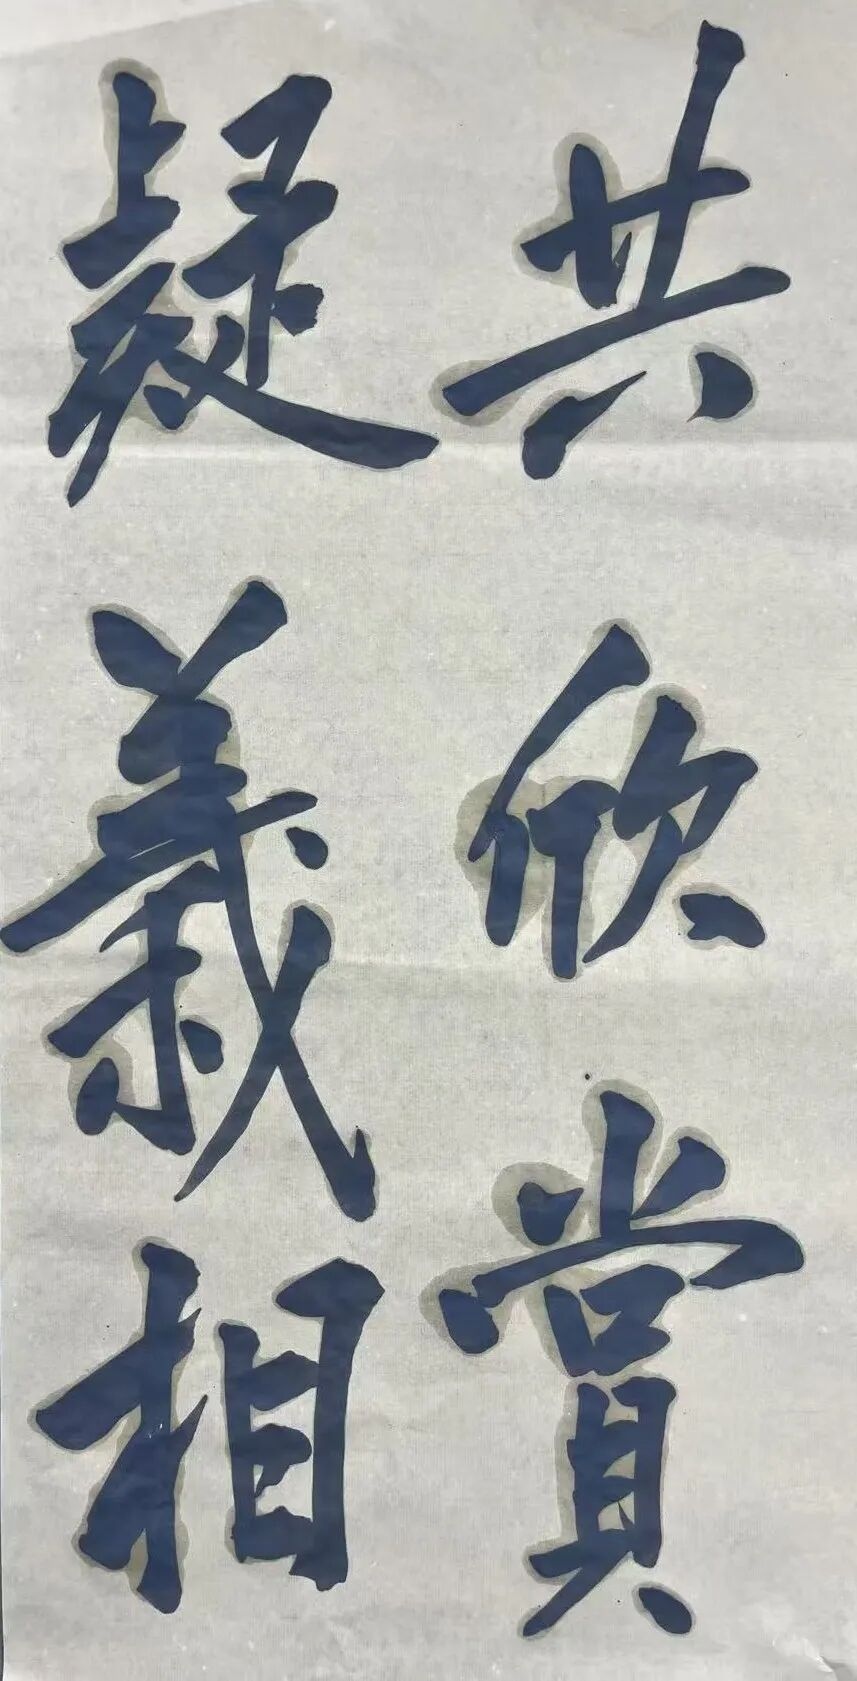 共欣賞
疑義相